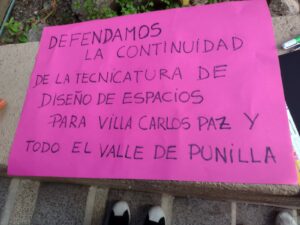 DEFENDAMOS
LA CONTINUIDAD
DE LA TECNICATURA DE
DISEÑO DE ESPACIOS
PARA VILLA CARLOS PAZ Y
TODO EL VALLE DE PUNILLA